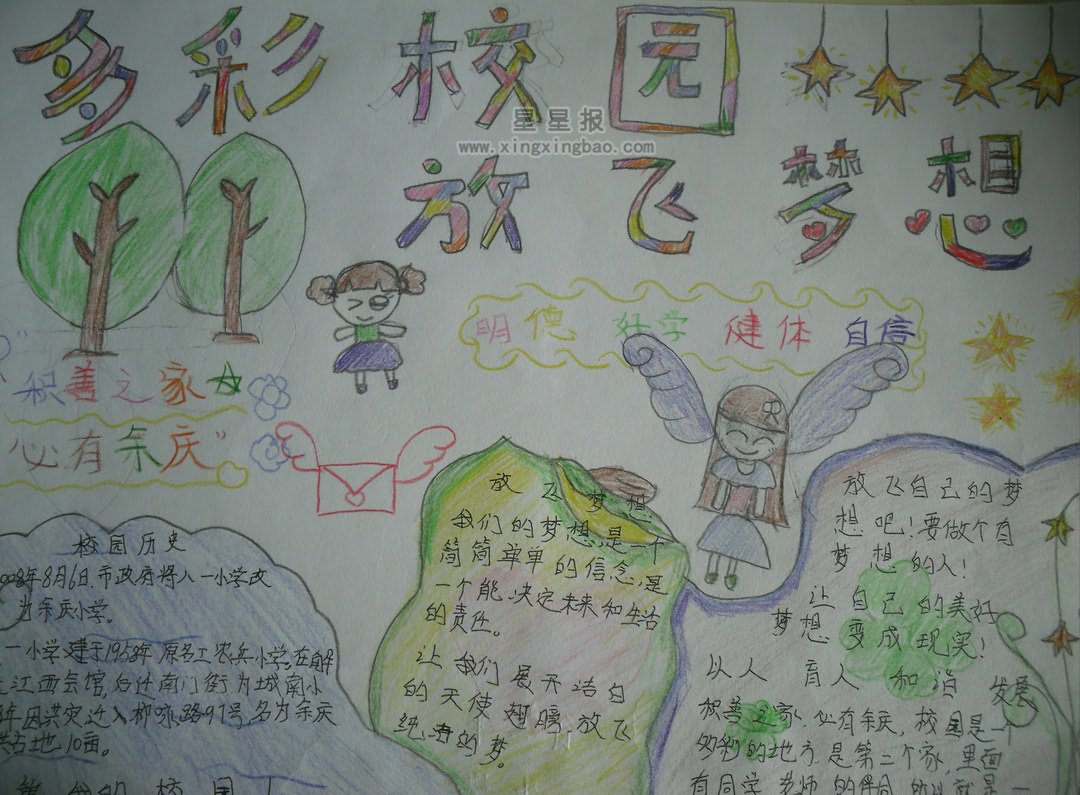 多彩校园
星星报
www.xingxingbao.com
放飞梦想
明德 好学 健体 自信
"积善之家
必有余庆"
校园历史
年8月6日.市政府将八一小学改
为余庆小学。
一小学建于1958年 原名工农兵小学.在
江西会馆,后迁南门街为城南小
迁入柳 路91号,名为余庆
占地10亩。
校园
放飞梦想
我们的梦想,是一个
简简单单的信念,是
一个能决定未来和生活
的责任。
让我们展开洁白
的天使翅膀,放飞
纯 的梦。
放飞自己的梦
想吧!要做个有
梦想的人!
让自己的美好
梦想变成现实!
以人 育人 和谐 发展
积善之家,必有余庆,校园是一个
多彩的地方 是第二个家,里面
有同学 老师 的伴同